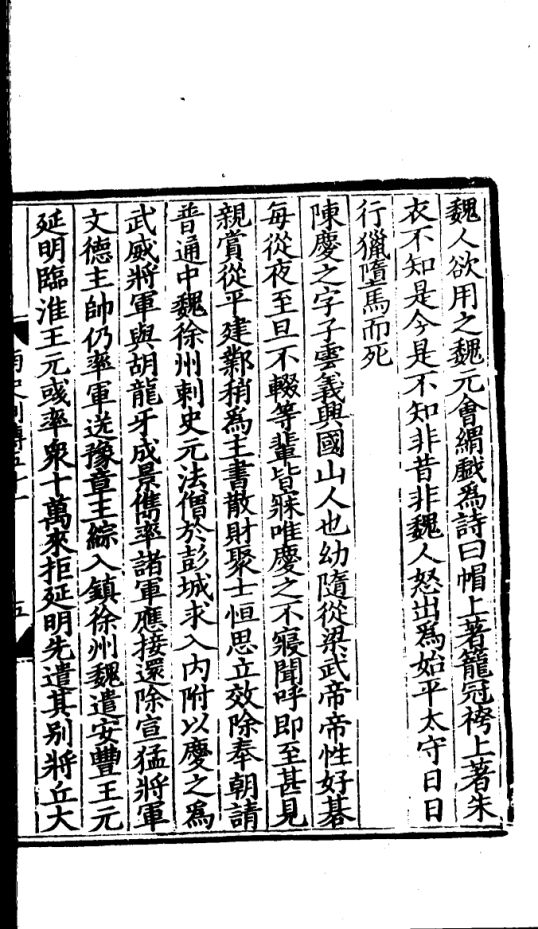 魏人欲用之魏元會緭戱爲詩曰帽上著籠冠袴上著朱
衣不知是今是不知非昔非魏人怒出爲始平太守日日
行獵墮馬而死
陳慶之字子雲義興國山人也幼隨從梁武帝帝性好棊
每從夜至旦不輟等輩皆寐唯慶之不寢聞呼即至甚見
親賞從平建鄴稍爲主書散財聚士恒思立效除奉朝請
普通中魏徐州刺史元法僧於彭城求入内附以慶之爲
武威將軍與胡龍牙成景儁率諸軍應接還除宣猛將軍
文德主帥仍率軍送豫章王綜入鎮徐州魏遣安豐王元
延明臨淮王元彧率衆十萬來拒延明先遣其別將丘大
南史列傳五十一
五